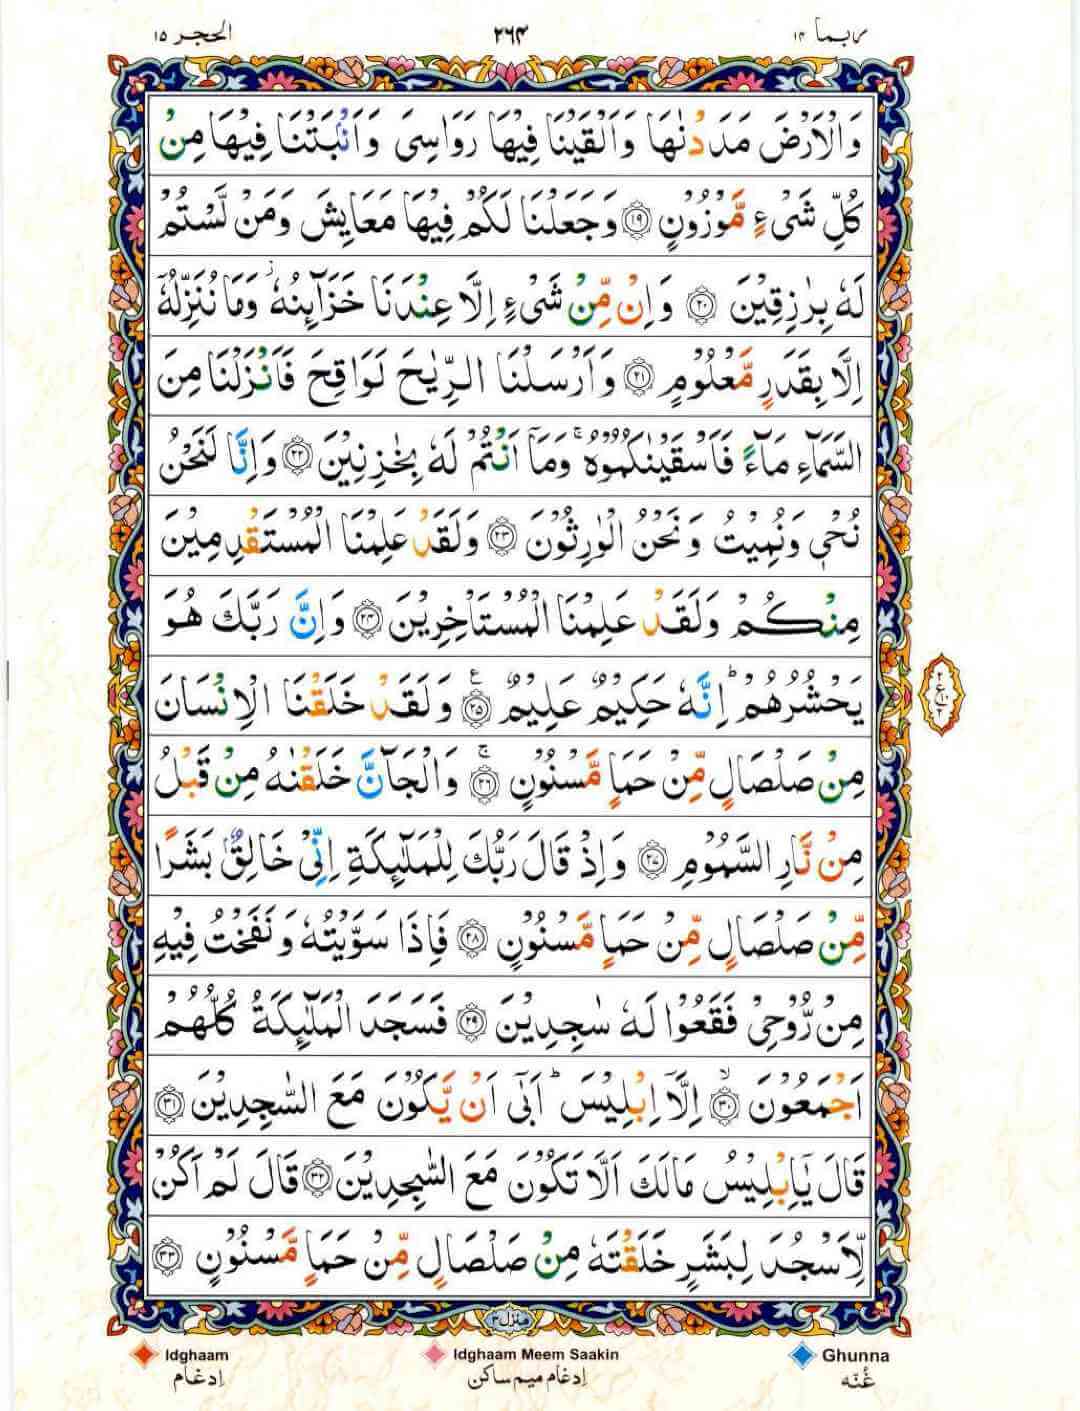 ربما ۱۴
۲۶۴
الحجر ۱۵
وَالْاَرْضَ مَدَدْنٰهَا وَاَلْقَيْنَا فِيْهَا رَوَاسِيَ وَاَنْۢبَتْنَا فِيْهَا مِنْ
كُلِّ شَيْءٍ مَّوْزُوْنٍ ﴿۱۹﴾ وَجَعَلْنَا لَكُمْ فِيْهَا مَعَايِشَ وَمَنْ لَّسْتُمْ
لَهٗ بِرٰزِقِيْنَ ﴿۲۰﴾ وَاِنْ مِّنْ شَيْءٍ اِلَّا عِنْدَنَا خَزَآئِنُهٗ ۫ وَمَا نُنَزِّلُهٗۤ
اِلَّا بِقَدَرٍ مَّعْلُوْمٍ ﴿۲۱﴾ وَاَرْسَلْنَا الرِّيٰحَ لَوَاقِحَ فَاَنْزَلْنَا مِنَ
السَّمَآءِ مَآءً فَاَسْقَيْنٰكُمُوْهُ ۚ وَمَاۤ اَنْتُمْ لَهٗ بِخٰزِنِيْنَ ﴿۲۲﴾ وَاِنَّا لَنَحْنُ
نُحْيٖ وَنُمِيْتُ وَنَحْنُ الْوٰرِثُوْنَ ﴿۲۳﴾ وَلَقَدْ عَلِمْنَا الْمُسْتَقْدِمِيْنَ
مِنْكُمْ وَلَقَدْ عَلِمْنَا الْمُسْتَاْخِرِيْنَ ﴿۲۴﴾ وَاِنَّ رَبَّكَ هُوَ
يَحْشُرُهُمْ ؕ اِنَّهٗ حَكِيْمٌ عَلِيْمٌ ﴿۲۵﴾ ع وَلَقَدْ خَلَقْنَا الْاِنْسَانَ
مِنْ صَلْصَالٍ مِّنْ حَمَاٍ مَّسْنُوْنٍ ﴿۲۶﴾ ۚ وَالْجَآنَّ خَلَقْنٰهُ مِنْ قَبْلُ
مِنْ نَّارِ السَّمُوْمِ ﴿۲۷﴾ وَاِذْ قَالَ رَبُّكَ لِلْمَلٰٓئِكَةِ اِنِّيْ خَالِقٌۢ بَشَرًا
مِّنْ صَلْصَالٍ مِّنْ حَمَاٍ مَّسْنُوْنٍ ﴿۲۸﴾ فَاِذَا سَوَّيْتُهٗ وَنَفَخْتُ فِيْهِ
مِنْ رُّوْحِيْ فَقَعُوْا لَهٗ سٰجِدِيْنَ ﴿۲۹﴾ فَسَجَدَ الْمَلٰٓئِكَةُ كُلُّهُمْ
اَجْمَعُوْنَ ﴿۳۰﴾ ۙ اِلَّاۤ اِبْلِيْسَ ؕ اَبٰۤى اَنْ يَّكُوْنَ مَعَ السّٰجِدِيْنَ ﴿۳۱﴾
قَالَ يٰۤاِبْلِيْسُ مَا لَكَ اَلَّا تَكُوْنَ مَعَ السّٰجِدِيْنَ ﴿۳۲﴾ قَالَ لَمْ اَكُنْ
لِّاَسْجُدَ لِبَشَرٍ خَلَقْتَهٗ مِنْ صَلْصَالٍ مِّنْ حَمَاٍ مَّسْنُوْنٍ ﴿۳۳﴾
منزل ۳
Idghaam Idghaam Meem Saakin Ghunna
اِدغام اِدغام میم ساکن غُنّه